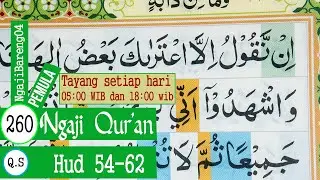 اِنْ نَّقُوْلُ اِلَّا اعْتَرٰىكَ بَعْضُ
NgajiBareng04
PEMULA
Tayang setiap hari
05:00 WIB dan 18:00 wib
وَاشْهَدُوْٓا اَنِّيْ
260 Ngaji Qur'an
Q.S Hud 54-62
جَمِيْعًا ثُمَّ لَا